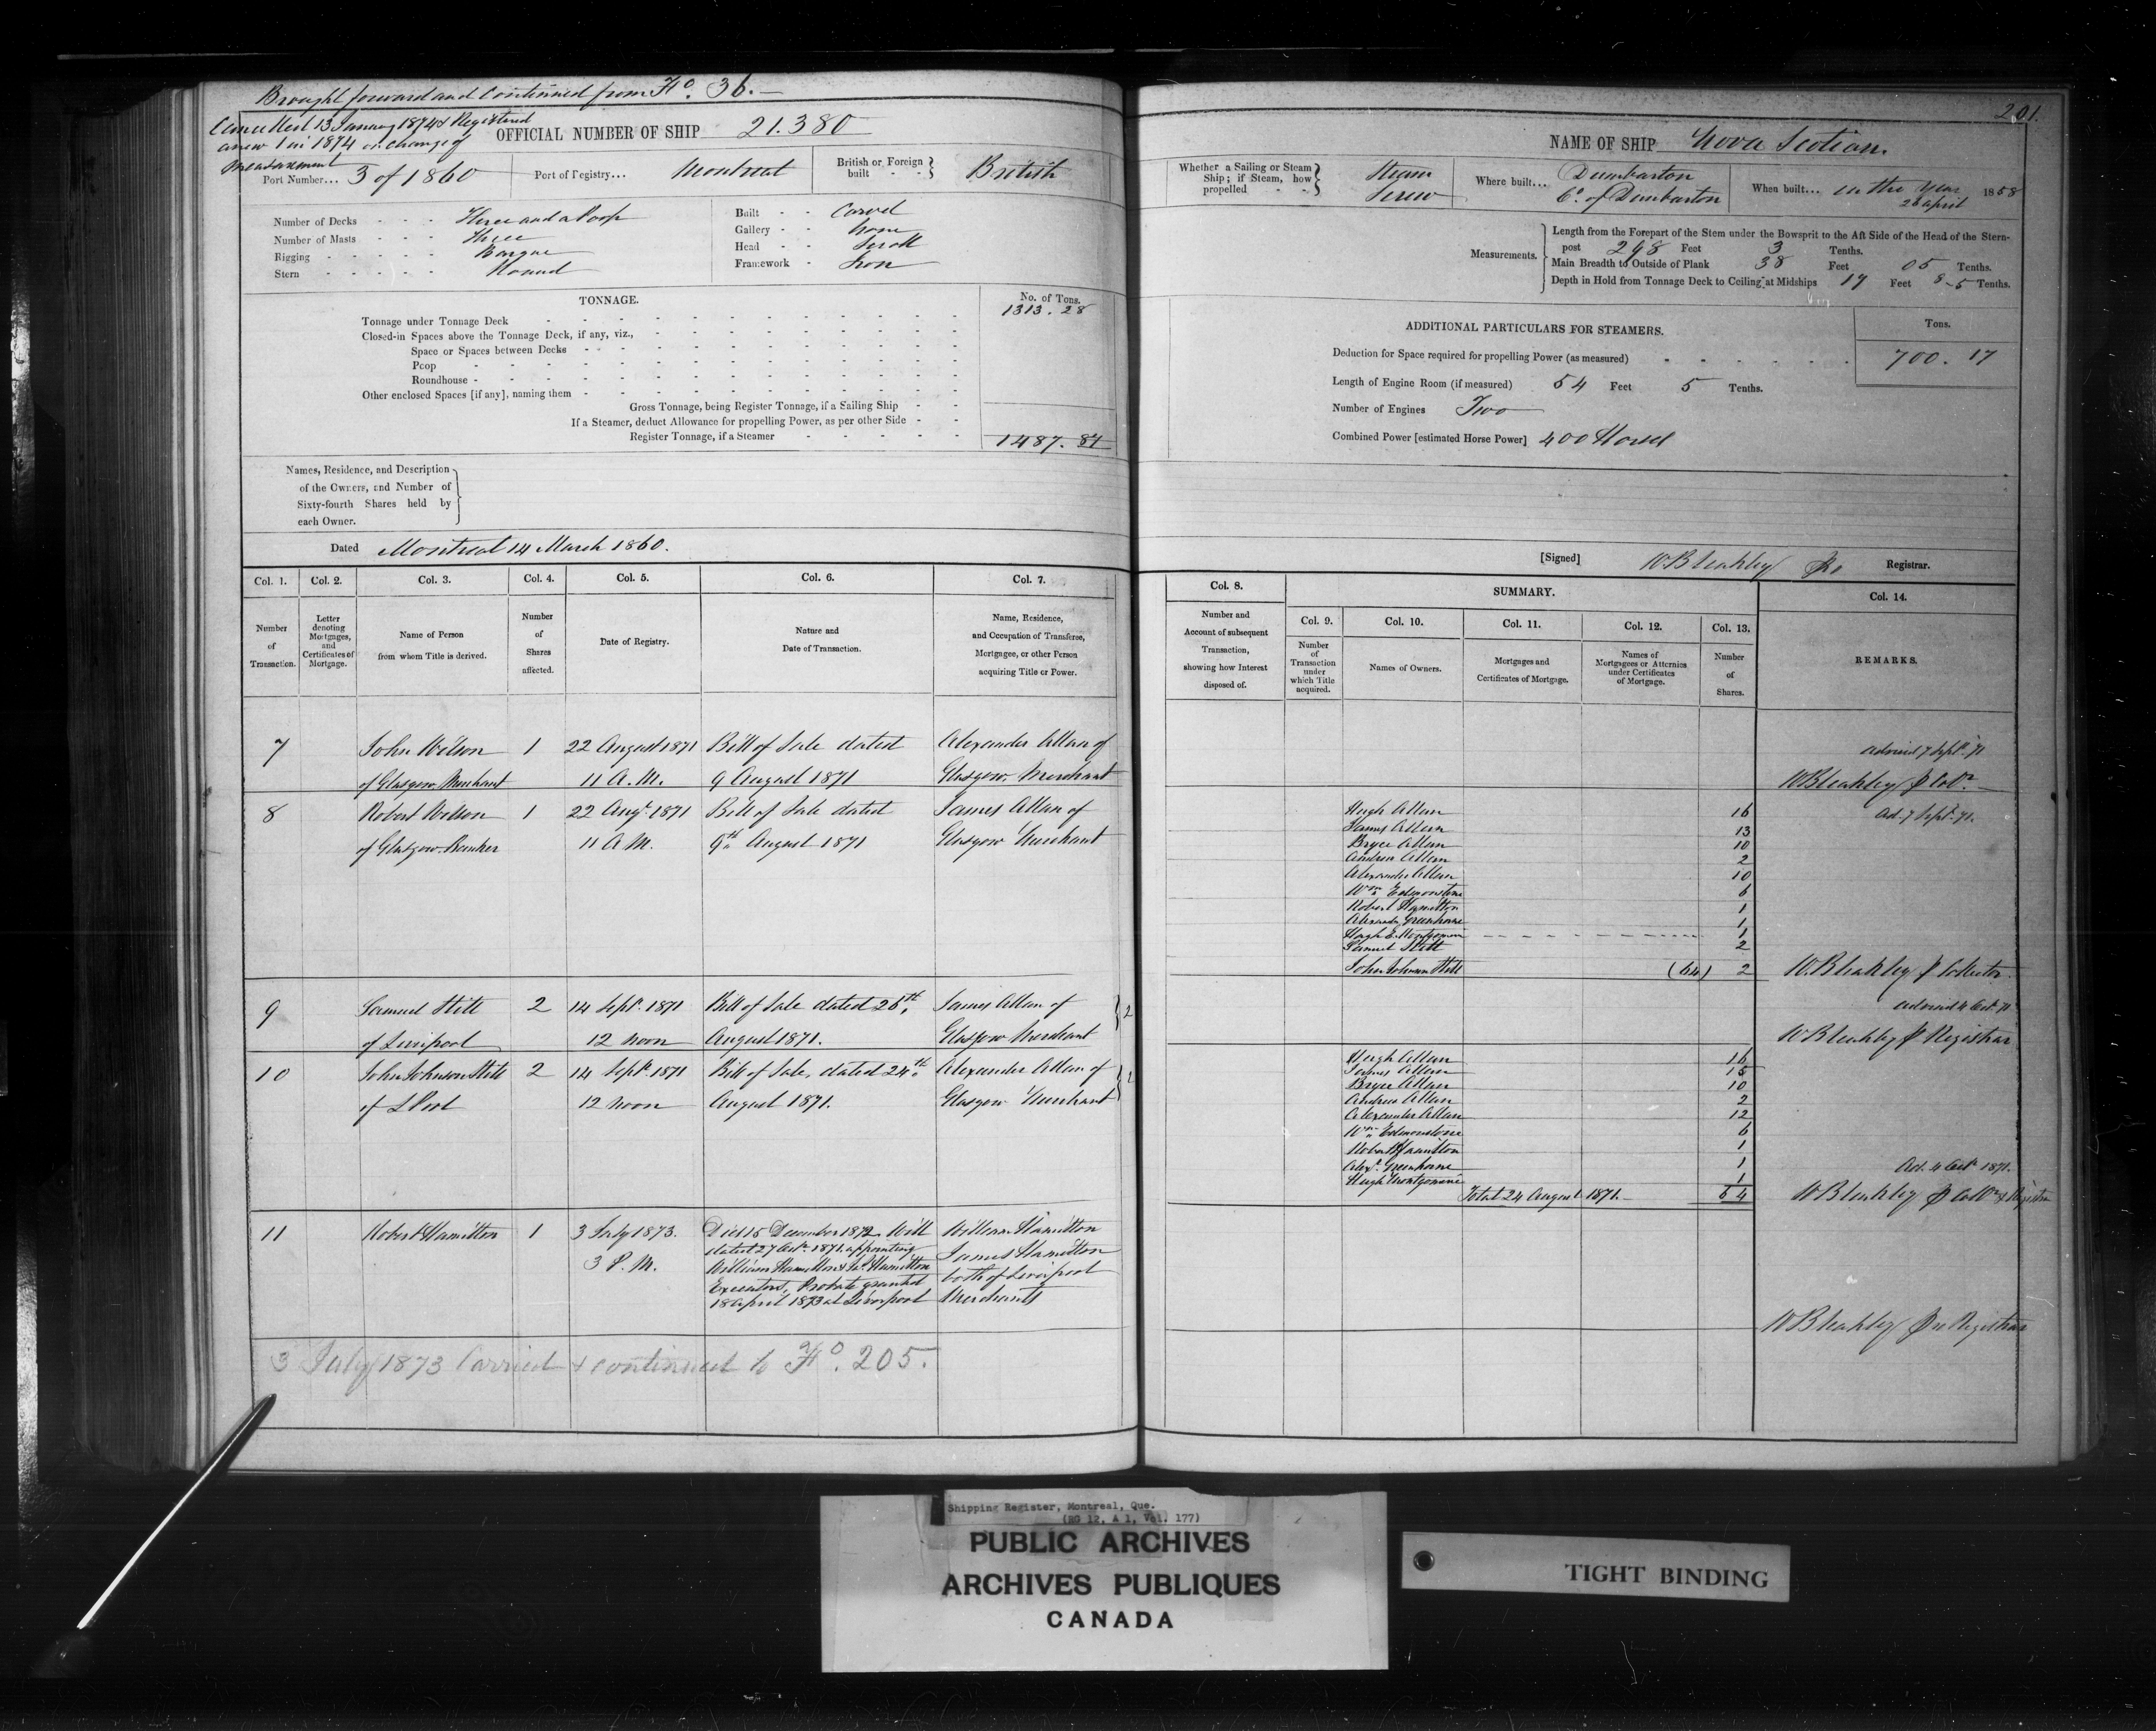 Brought forward and Continued from Fo. 36.
201.
Cancelled 13 January 1874 & Registered
anew 1 in 1874 on change of
Measurement
OFFICIAL NUMBER OF SHIP 21.380
NAME OF SHIP Nova Scotian.
Port Number... 3 of 1860
Port of Registry... Montreal
British or Foreign built - - } British
Whether a Sailing or Steam Ship; if Steam, how propelled - - } Steam Screw
Where built... Dumbarton
Co. of Dumbarton
When built... in the Year 1858
26 April
Number of Decks - - - Three and a Poop
Number of Masts - - - Three
Rigging - - - - - Barque
Stern - - - - - Round
Built - - Carvel
Gallery - - None
Head - - Scroll
Framework - Iron
Measurements.
Length from the Forepart of the Stem under the Bowsprit to the Aft Side of the Head of the Stern-
post 298 Feet 3 Tenths.
Main Breadth to Outside of Plank 38 Feet 05 Tenths.
Depth in Hold from Tonnage Deck to Ceiling at Midships 17 Feet 8-5 Tenths.
TONNAGE.
No. of Tons.
Tonnage under Tonnage Deck 1313.28
Closed-in Spaces above the Tonnage Deck, if any, viz.,
Space or Spaces between Decks
Poop
Roundhouse
Other enclosed Spaces [if any], naming them
Gross Tonnage, being Register Tonnage, if a Sailing Ship
If a Steamer, deduct Allowance for propelling Power, as per other Side
Register Tonnage, if a Steamer 1487.84
ADDITIONAL PARTICULARS FOR STEAMERS.
Tons.
Deduction for Space required for propelling Power (as measured) 700.17
Length of Engine Room (if measured) 54 Feet 5 Tenths.
Number of Engines Two
Combined Power [estimated Horse Power] 400 Horse
Names, Residence, and Description
of the Owners, and Number of
Sixty-fourth Shares held by
each Owner.
Dated Montreal 14 March 1860.
[Signed] W. Bleakley Registrar.
Col. 1. Col. 2. Col. 3. Col. 4. Col. 5. Col. 6. Col. 7.
Number of Transaction.
Letter denoting Mortgages, and Certificates of Mortgage.
Name of Person from whom Title is derived.
Number of Shares affected.
Date of Registry.
Nature and Date of Transaction.
Name, Residence, and Occupation of Transferee, Mortgagee, or other Person acquiring Title or Power.
Col. 8.
SUMMARY.
Col. 14.
Col. 9. Col. 10. Col. 11. Col. 12. Col. 13.
Number and Account of subsequent Transaction, showing how Interest disposed of.
Number of Transaction under which Title acquired.
Names of Owners.
Mortgages and Certificates of Mortgage.
Names of Mortgagees or Attornies under Certificates of Mortgage.
Number of Shares.
REMARKS.
7 John Wilson 1 22 August 1871 Bill of Sale dated Alexander Allan of
of Glasgow Merchant 11 A.M. 9 August 1871 Glasgow, Merchant
advised 7 Sept. 71
W Bleakley
8 Robert Wilson 1 22 Augt. 1871 Bill of Sale dated James Allan of
of Glasgow Banker 11 A.M. 9th August 1871 Glasgow Merchant
Hugh Allan 16
Ad. 7 Sept. 71.
James Allan 13
Bryce Allan 10
Andrew Allan 2
Alexander Allan 10
Wm Edmonstone 6
Robert Hamilton 1
Alexander Greenhorne 1
Hugh E. Montgomerie 1
Samuel Stitt 2
John Johnson Stitt (64) 2
W. Bleakley Collector
9 Samuel Stitt 2 14 Sept. 1871 Bill of Sale dated 25th James Allan of } 2
of Liverpool 12 noon August 1871. Glasgow Merchant
advised 4 Oct. 71
W Bleakley Registrar
10 John Johnson Stitt 2 14 Sept. 1871 Bill of Sale, dated 24th Alexander Allan of } 2
of LPool 12 noon August 1871. Glasgow Merchant
Hugh Allan 16
James Allan 15
Bryce Allan 10
Andrew Allan 2
Alexander Allan 12
Wm Edmonstone 6
Robert Hamilton 1
Alexr. Greenhorne 1
Hugh Montgomerie 1
Total 24 August 1871. 64
Ad. 4 Oct. 1871.
W Bleakley
11 Robert Hamilton 1 3 July 1873. Died 15 December 1872 Will William Hamilton
dated 27 Octr. 1871 appointing James Hamilton
3 P.M. William Hamilton & Jas. Hamilton both of Liverpool
Executors, Probate granted Merchants
18 April 1873 at Liverpool
W Bleakley Registrar
3 July 1873 Carried & continued to Fo. 205.
Shipping Register, Montreal, Que.
(RG 12, A 1, Vol. 177)
PUBLIC ARCHIVES
ARCHIVES PUBLIQUES
CANADA
TIGHT BINDING